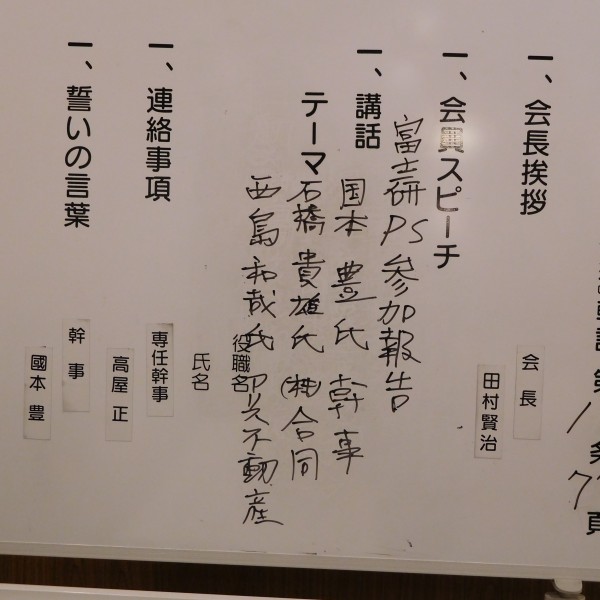 第1条
7頁
一、会長挨拶
会長
田村賢治
一、会員スピーチ
富士研PS参加報告
一、講話
国本豊氏 幹事
テーマ
石橋貴雄氏 (株)合同
西島和哉氏
不動産
役職名
氏名
一、連絡事項
専任幹事
高屋 正
一、誓いの言葉
幹事
國本 豊